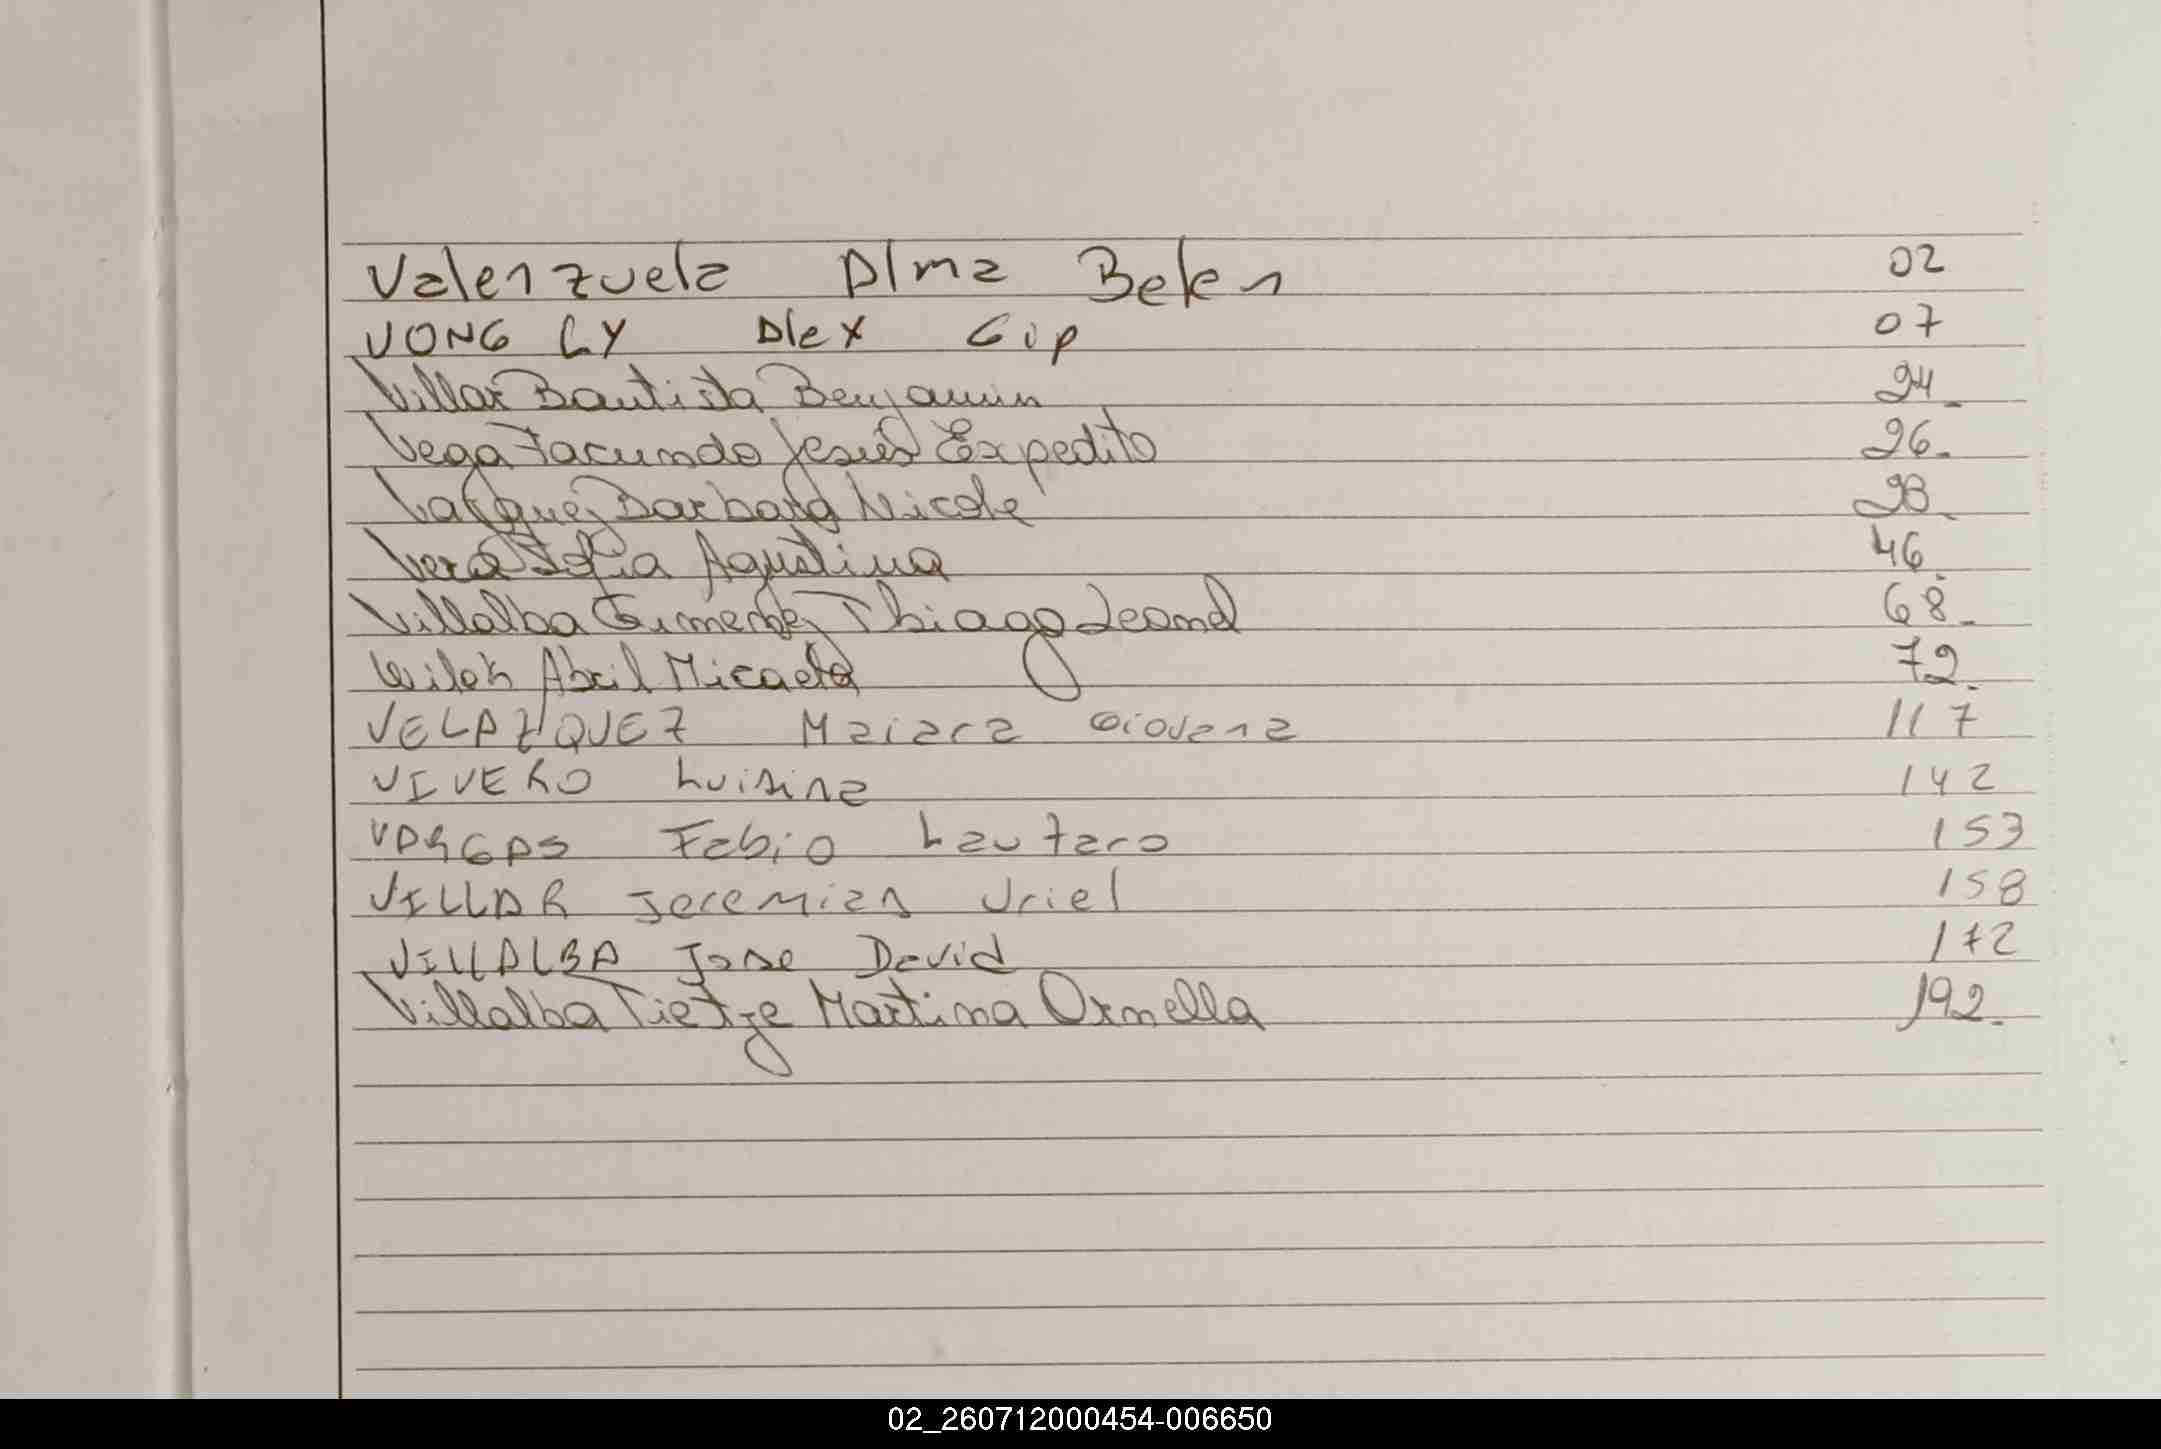 Valenzuela Alma Belen 02
VONG LY Alex Gip 07
Villar Bautista Benjamin 24
Vega Facundo Jesús Expedito 26
Vasquez Barbara Nicole 28
Vera Sofia Agustina 46
Villalba Gimenez Thiago Leonel 68
Abril Micaela 72
VELAZQUEZ Maiara Giovana 117
VIVERO Luisina 142
VARGAS Fabio Lautaro 153
VILLAR Jeremias Uriel 158
VILLALBA Jose David 172
Villalba Tietze Martina Ornella 192
02_260712000454-006650